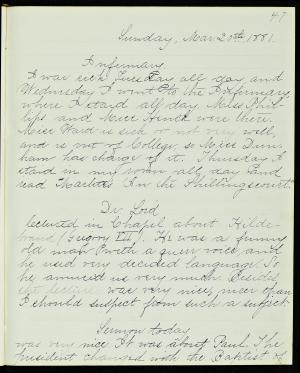 47
Sunday, Mar 20th, 1881.
Infirmary
I was sick Tuesday all day, and
Wednesday I went to the Infirmary
where I staid all day. Miss Phil-
lips and were there.
Miss Ward is sick or not very well,
and is out of College, so Miss Dun-
ham has charge of it. Thursday I
staid in my room all day and
read
Dr. Lord
lectured in Chapel about Hilde-
brand (Gregory VII). He was a funny
old man with a queer voice, and
he used very decided language. So
he amused us very much. Besides,
the lecture was very nice, nicer than
I should suspect from such a subject.
Sermon today
was very nice. It was about Paul. The
president changed with the Baptist of